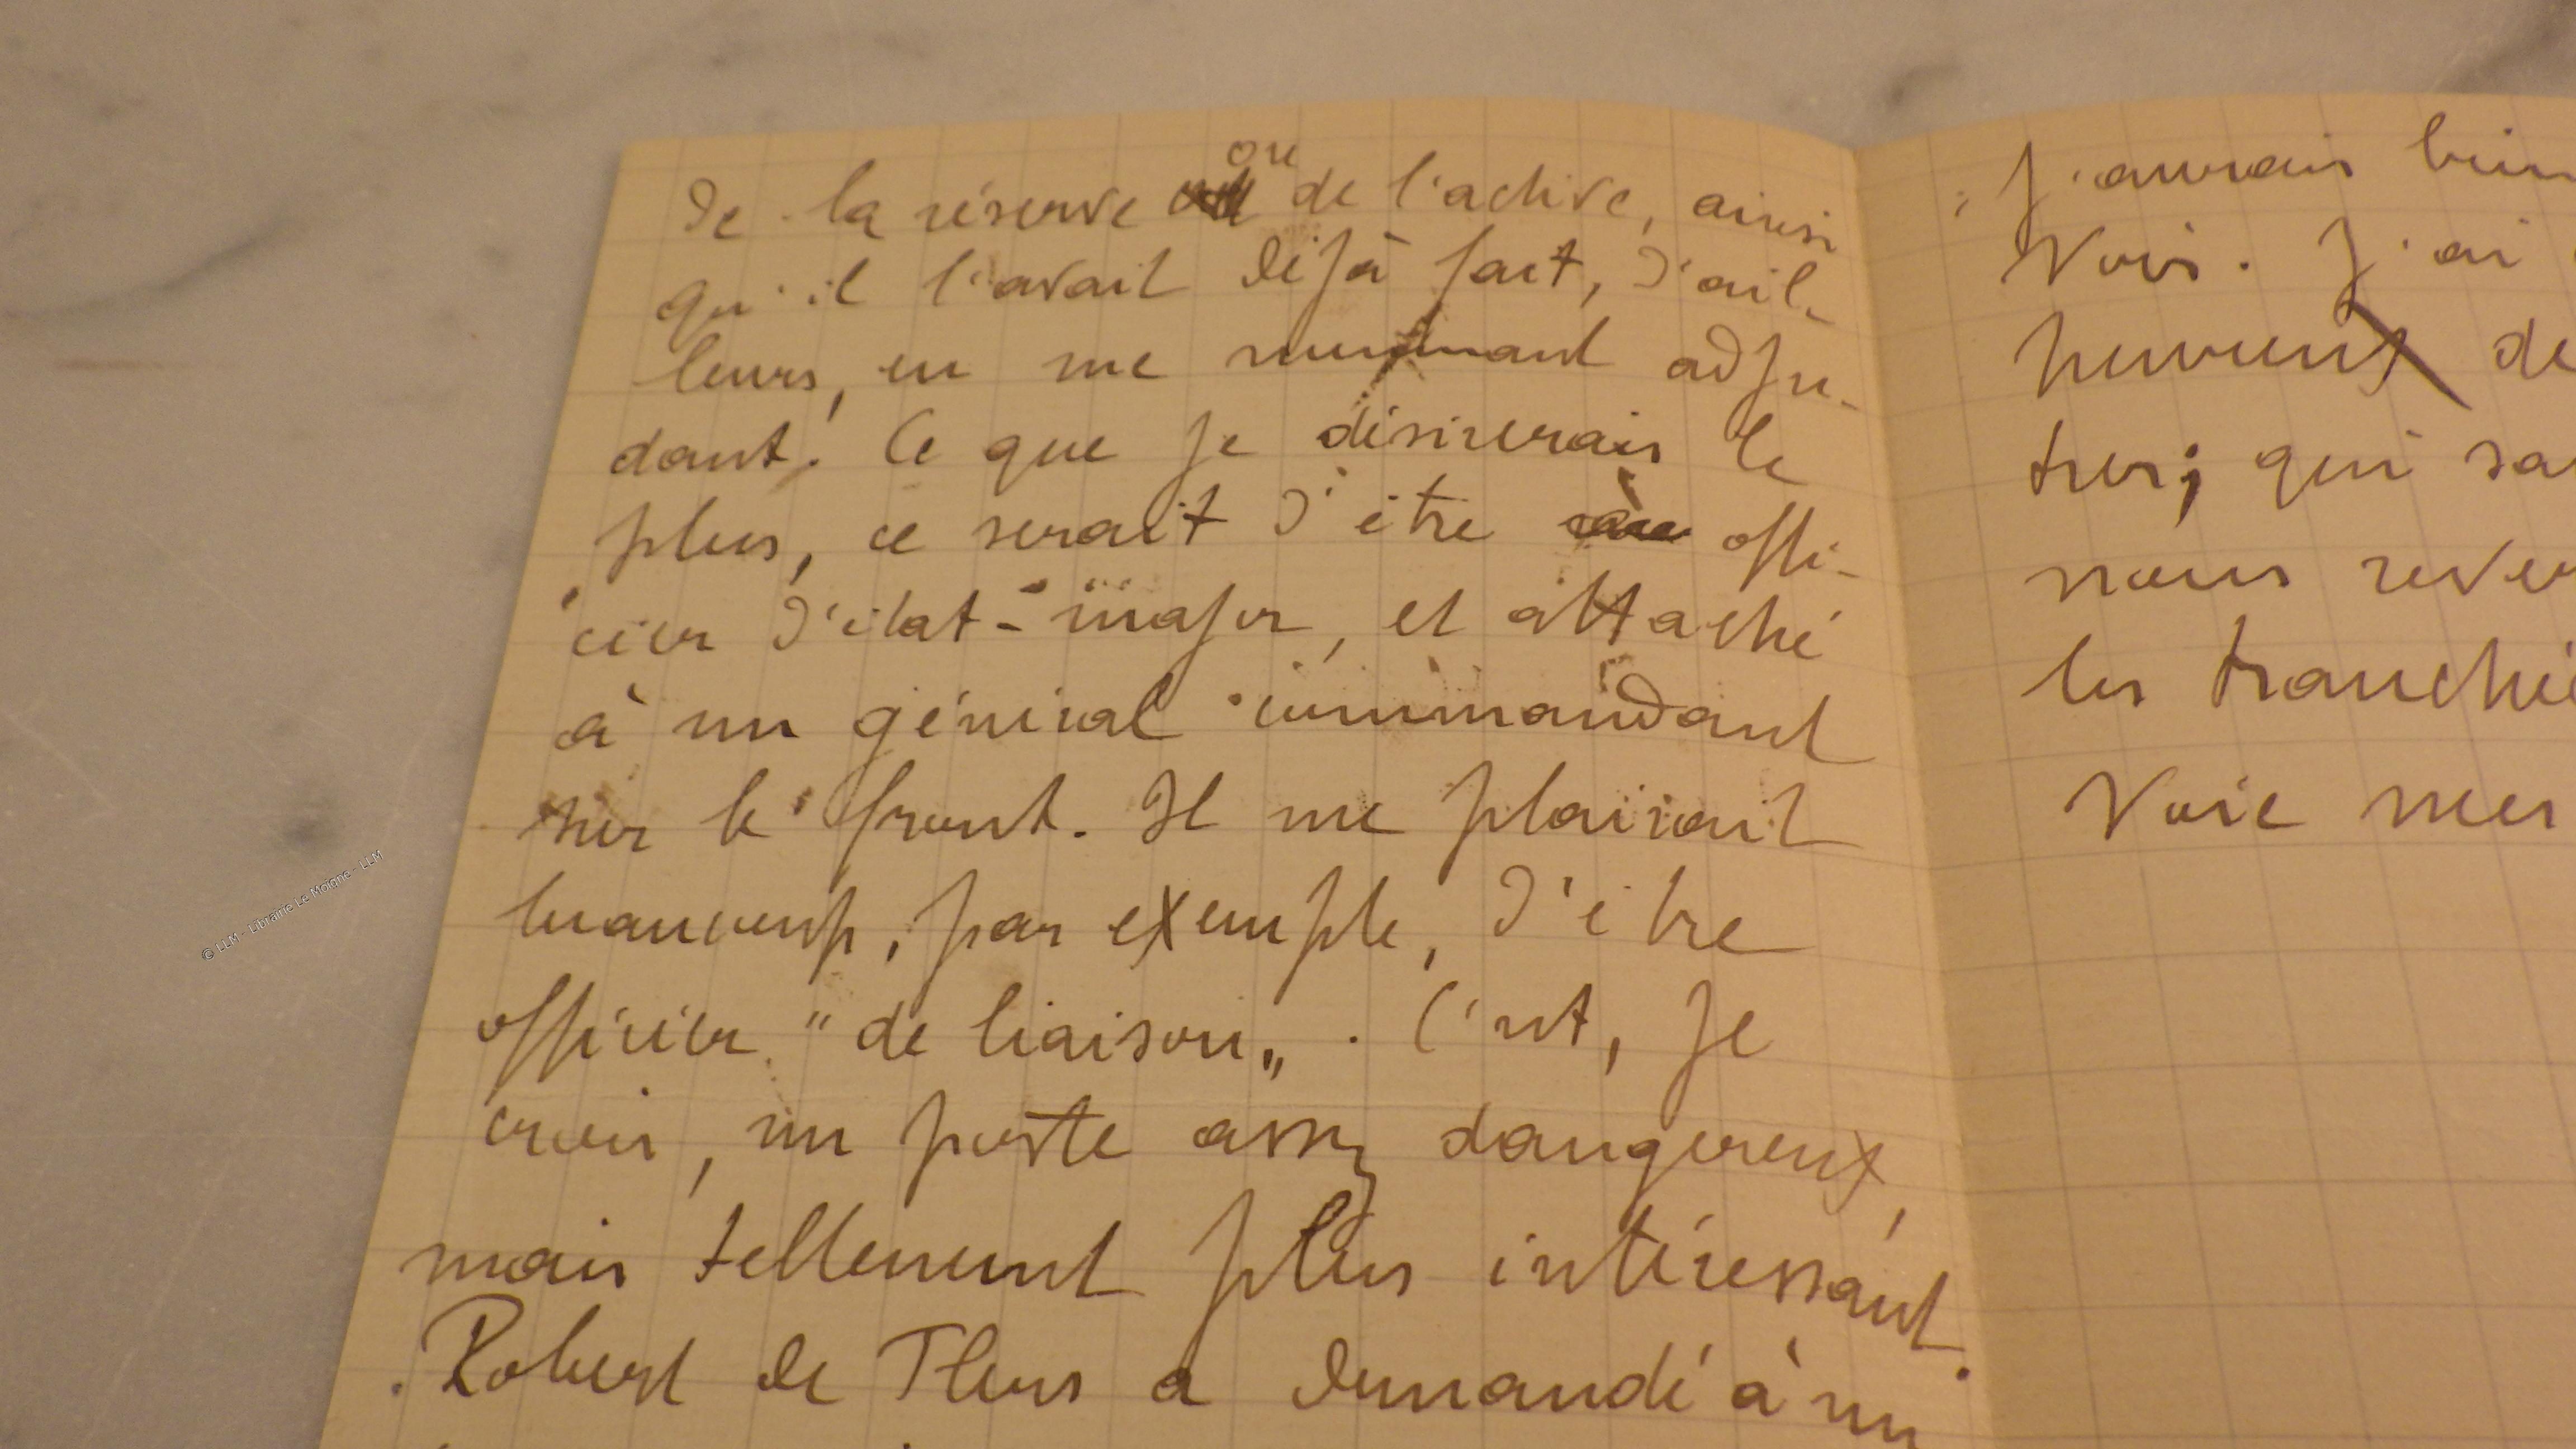 de la réserve ou de l'active, ainsi
qu'il l'avait déjà fait, d'ail-
leurs, en me nommant adju-
dant. Ce que je désirerais le
plus, ce serait d'être offi-
cier d'état-major, et attaché
à un général commandant
sur le front. Il me plairait
beaucoup, par exemple, d'être
officier "de liaison". C'est, je
crois, un poste assez dangereux,
mais tellement plus intéressant.
Robert de Flers a demandé à un
J'aurais bien
Vois. J'ai
heureux de
tres; qui sa
nous rever
les tranché
Voie mer
© LLM - Librairie Le Moigne - LLM